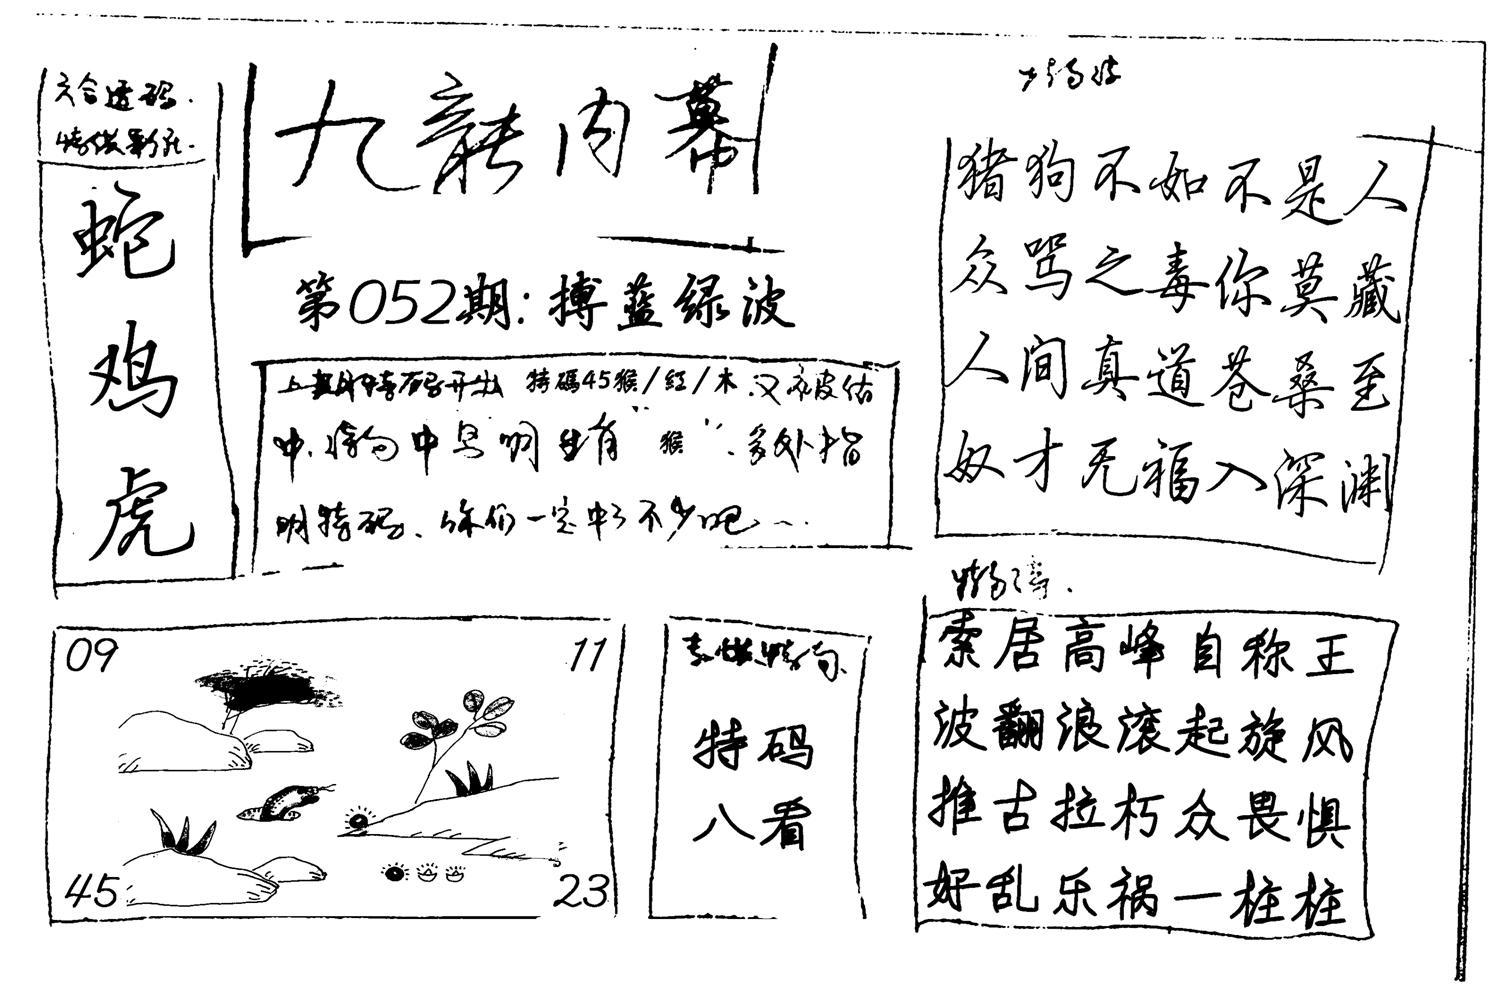 六合透码.
蛇
鸡
虎
九龍内幕
第052期:搏蓝绿波
上期特码开出 特碼45猴/紅/木.又被估
中.特 中 明 生肖“猴”.多处指
明特码、你们一定中了不少吧...
猪狗不如不是人
众骂之毒你莫藏
人间真道苍桑至
奴才无福入深渊
索居高峰自称王
波翻浪滚起旋风
推古拉朽众畏惧
好乱乐祸一柱柱
09
11
45
23
特码
八看